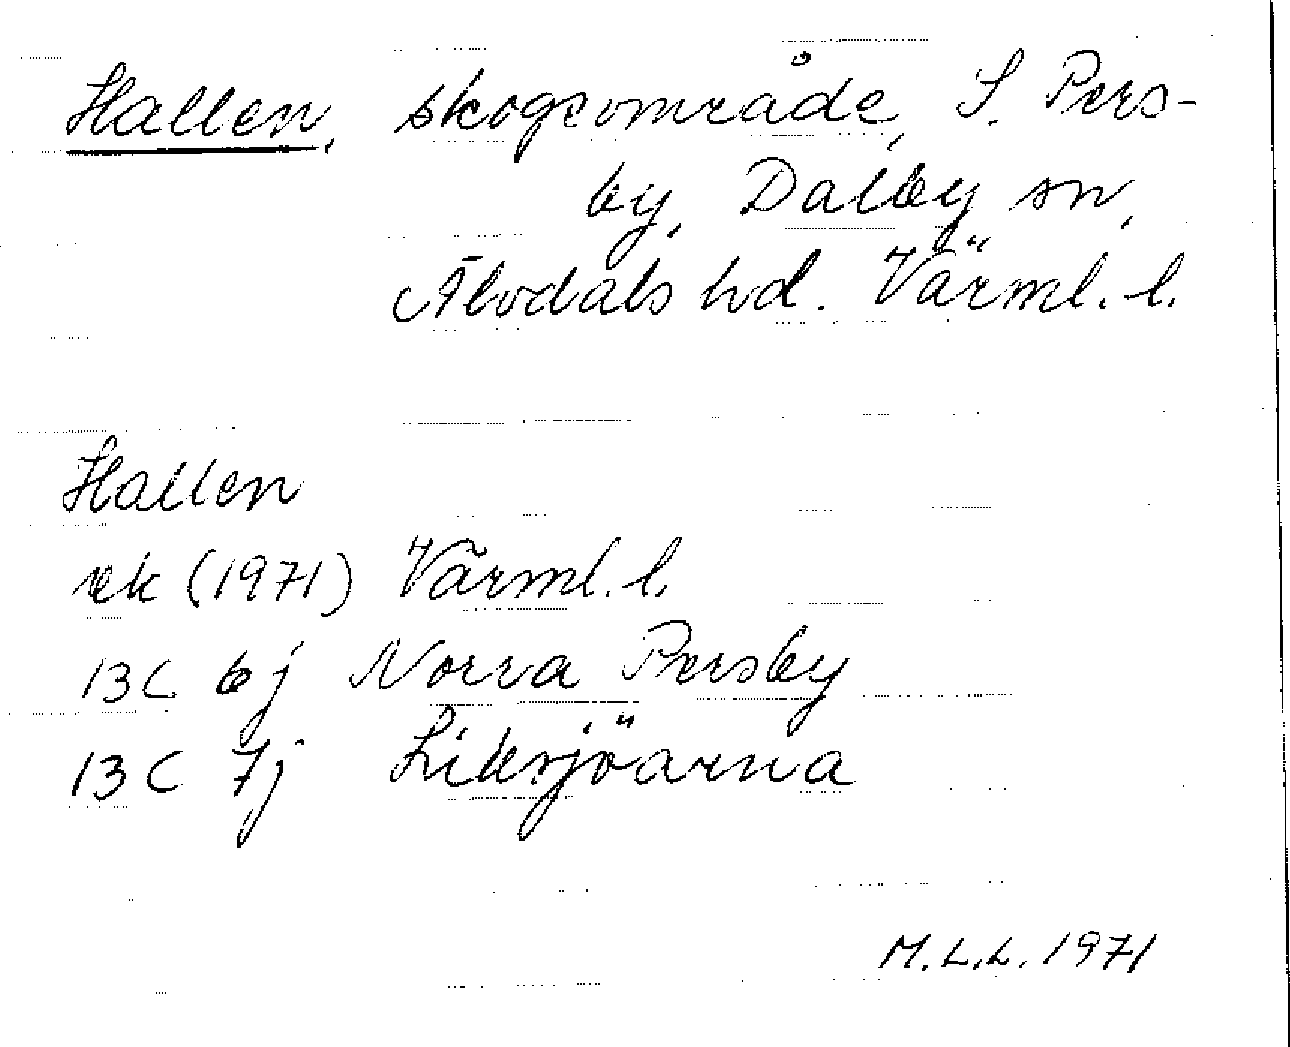 Hallen, skogsområde, S. Pers-
by, Dalby sn,
Älvdals hd. Värml. l.
Hallen
ek (1971) Värml. l.
13C 6j Norra Persby
13C 7j Liksjöarna
M.L.L. 1971